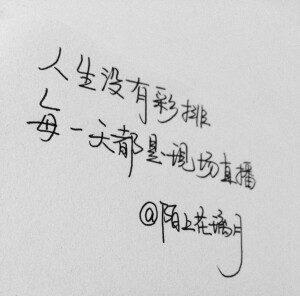 人生没有彩排
每一天都是现场直播
@陌上花满月